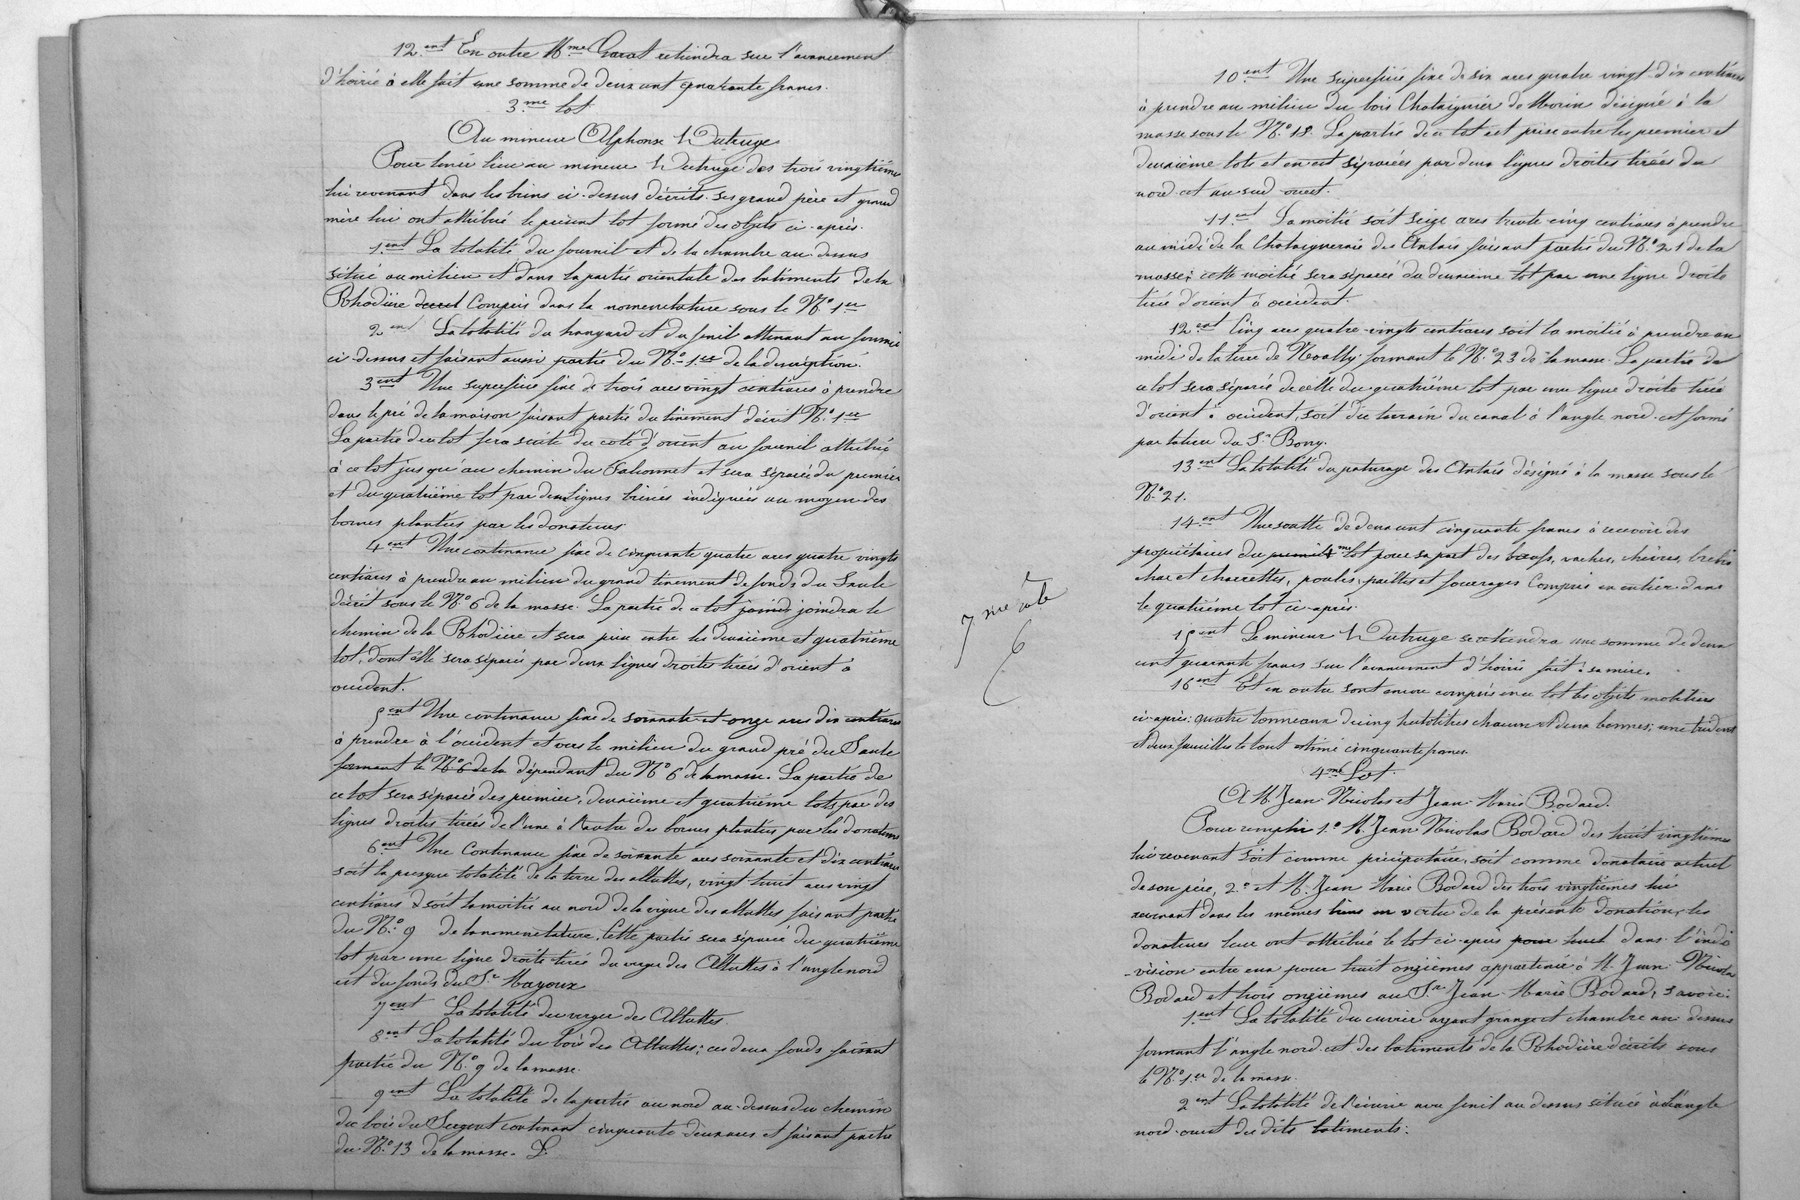 12.ent En outre Mme Garat retiendra sur l'avancement
d'hoirie à elle fait une somme de deux cent quarante francs.
3.me lot
Au mineur Alphonse Dutruge
Pour tenir lieu au mineur Dutruge des trois vingtièmes
lui revenant dans les biens ci-dessus décrits. ses grand père et grand
mère lui ont attribué le présent lot formé des objets ci-après.
1.ent La totalité du fournil et de la chambre au-dessus
située au milieu et dans la partie orientale des batiments de la
Rhodière compris dans la nomenclature sous le No 1er
2ent La totalité du hangard et du fenil attenant au fournil
ci-dessus et faisant aussi partie du No 1er de la description.
3ent Une superficie fixe de trois ares vingt centiares à prendre
dans le pré de la maison faisant partie du tinement décrit No 1er
La partie de ce lot fera suite du coté d'orient au fournil attribué
à ce lot jusqu'au chemin du et sera séparée du premier
et du quatrième lot par deux lignes brisées indiquées au moyen des
bornes plantées par les donateurs
4ent Une contenance fixe de cinquante quatre ares quatre vingts
centiares à prendre au milieu du grand tinement de fonds du Saule
décrit sous le No 6 de la masse. La partie de ce lot joindra le
chemin de la Rhodière et sera prise entre les deuxième et quatrième
lot, dont elle sera séparée par deux lignes droites tirées d'orient à
occident.
5ent Une contenance fixe de soixante-et-onze ares dix centiares
à prendre à l'occident et vers le milieu du grand pré du Saule
formant le No 6 de la dépendant du No 6 de la masse. La partie de
ce lot sera séparée des premier, deuxième et quatrième lots par des
lignes droites tirées de l'une à l'autre des bornes plantées par les donateurs
6ent Une Contenance fixe de soixante ares soixante et dix centiares
soit la presque totalité de la terre des Alluttes, vingt huit ares vingt
centiares soit la moitié au nord de la vigne des Alluttes faisant partie
du No 9 de la nomenclature. Cette partie sera séparée du quatrième
lot par une ligne droite tirée du verger des Alluttes à l'angle nord
est du fonds du Sr Mayoux
7ent La totalité du verger des Alluttes
8ent La totalité du bois des Alluttes; ces deux fonds faisant
partie du No 9 de la masse.
9ent La totalité de la partie au nord au-dessus du chemin
du bois du contenant cinquante deux ares et faisant partie
du No 13 de la masse.
10ent Une superficie fixe de six ares quatre vingt-dix centiares
à prendre au milieu du bois Chataignier de Morin désigné à la
masse sous le No 18. La partie de ce lot est prise entre les premier et
deuxième lots et en est séparée par deux lignes droites tirées du
nord-est au sud-ouest.
11ent La moitié soit seize ares trente cinq centiares à prendre
au midi de la Chataigneraie des Antais faisant partie du No 21 de la
masse; cette moitié sera séparée du deuxième lot par une ligne droite
tirée d'orient à occident.
12ent Cinq ares quatre-vingts centiares soit la moitié à prendre au
midi de la terre de Noally formant le No 23 de la masse. La partie de
ce lot sera séparée de celle du quatrième lot par une ligne droite tirée
d'orient à occident, soit du terrain du canal à l'angle nord-est formé
par la terre du Sr Bony.
13ent La totalité du paturage des Antais désigné à la masse sous le
No 21.
14ent Une soulte de deux cent cinquante francs à recevoir des
propriétaires du premier 4me lot pour sa part des bœufs, vaches, chèvres, brebis
char et charrettes, poules, pailles et fourrages compris en entier dans
le quatrième lot ci-après.
7 me rôle
15ent Le mineur Dutruge retiendra une somme de deux
cent quarante francs sur l'avancement d'hoirie fait à sa mère.
16ent Et en outre sont encore compris en ce lot les objets mobiliers
ci-après: quatre tonneaux de cinq hectolitres chacun et deux bennes; une
et deux faucilles le tout estimé cinquante francs.
4me Lot.
A M. Jean Nicolas et Jean Marie Bodard.
Pour remplir 1.o M. Jean Nicolas Bodard des huit vingtièmes
lui revenant soit comme préciputaire, soit comme donataire actuel
de son père, 2.o et M. Jean Marie Bodard des trois vingtièmes lui
revenant dans les mêmes biens en vertu de la présente donation, les
donateurs leur ont attribué le lot ci-après pour huit dans l'indi
-vision entre eux pour huit onzièmes appartenir à M. Jean Nicolas
Bodard et trois onzièmes au Sr Jean-Marie Bodard, savoir:
1.ent La totalité du cuvier ayant grange et chambre au-dessus
formant l'angle nord-est des batiments de la Rhodière décrits sous
le No 1.er de la masse.
2ent La totalité de l'écurie avec fenil au-dessus située à l'angle
nord-ouest des dits batiments.